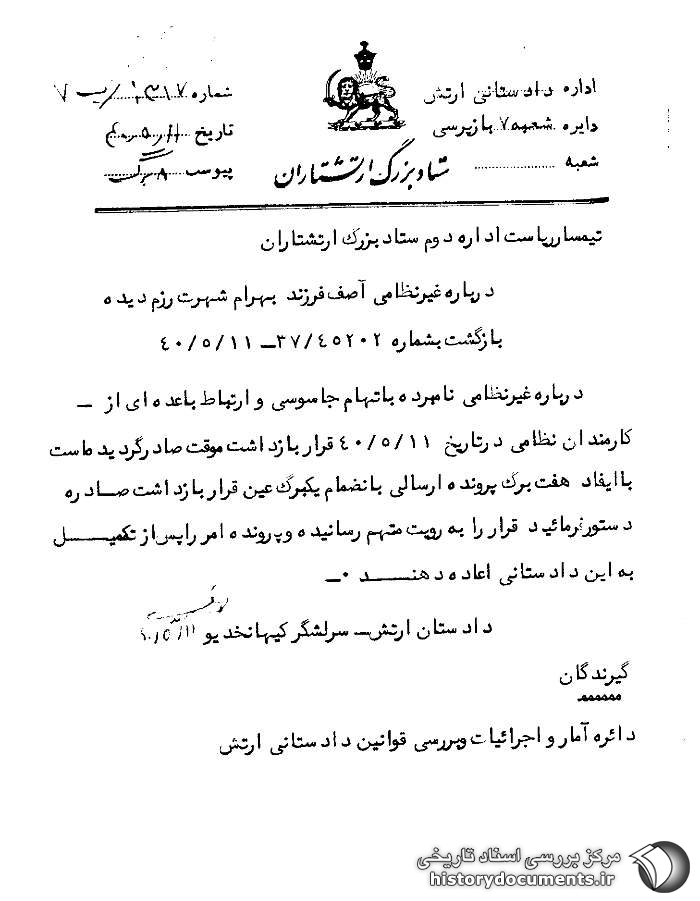 اداره دادستانی ارتش
دایره شعبه ۷ بازپرسی
شعبه
ستاد بزرگ ارتشتاران
شماره
تاریخ
پیوست ۸ برگ
تیمسار ریاست اداره دوم ستاد بزرگ ارتشتاران
درباره غیرنظامی آصف فرزند بهرام شهرت رزم دیده
بازگشت بشماره ۳۷/٤٥۲۰۲ــ ٤۰/٥/۱۱
درباره غیرنظامی نامبرده باتهام جاسوسی و ارتباط باعده ای از ــ
کارمندان نظامی درتاریخ ٤۰/٥/۱۱ قرار بازداشت موقت صادرگردیده است
باایفاد هفت برگ پرونده ارسالی بانضمام یکبرگ عین قرار بازداشت صـادره
دستورفرمائید قرار را به رویت متهم رسانیده وپرونده امر راپس از تکمیـــل
به این دادستانی اعاده دهنـــد ۰ــ
دادستان ارتش ــ سرلشگر کیهانخدیو
گیرندگان
دائره آمار و اجرائیات وبررسی قوانین دادستانی ارتش
مرکز بررسی اسناد تاریخی
historydocuments.ir